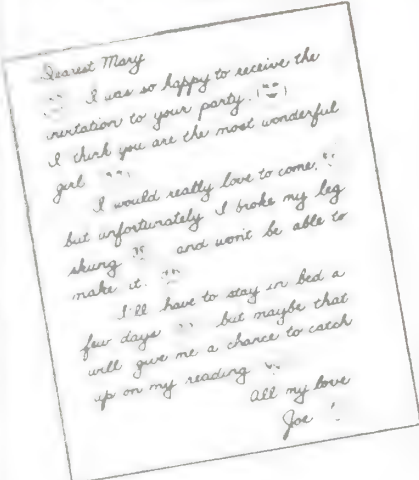 Dearest Mary
I was so happy to receive the
invitation to your party.
I think you are the most wonderful
girl
I would really love to come,
but unfortunately I broke my leg
skiing and won't be able to
make it.
I'll have to stay in bed a
few days but maybe that
will give me a chance to catch
up on my reading
All my love
Joe